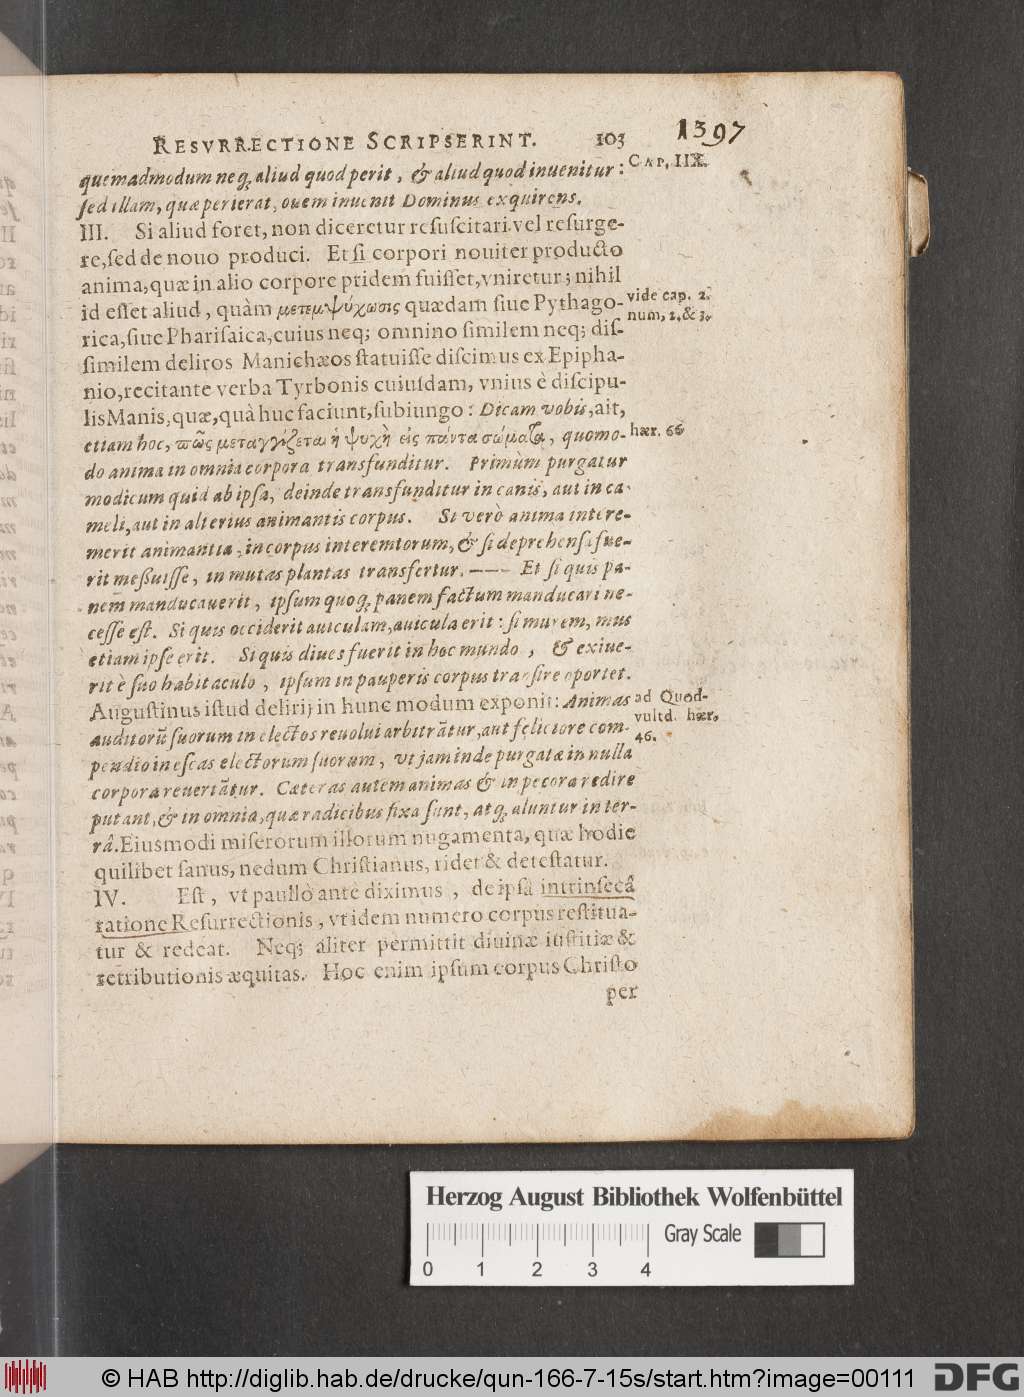 RESVRRECTIONE SCRIPSERINT. 103 1397
CAP. IIX.
quemadmodum neq; aliud quod perit, & aliud quod inuenitur:
sed illam, quæ perierat, ouem inuenit Dominus exquirens.
III. Si aliud foret, non diceretur resuscitari vel resurge-
re, sed de nouo produci. Et si corpori nouiter producto
anima, quæ in alio corpore pridem fuisset, vniretur; nihil
id esset aliud, quàm μετεμψύχωσις quædam siue Pythago-
vide cap. 2.
num, 2. & 3.
rica, siue Pharisaica, cuius neq; omnino similem neq; dis-
similem deliros Manichæos statuisse discimus ex Epipha-
nio, recitante verba Tyrbonis cuiusdam, vnius è discipu-
lis Manis, quæ, quà huc faciunt, subiungo: Dicam vobis, ait,
etiam hoc, πῶς μεταγγίζεται ἡ ψυχὴ εἰς πάντα σώματα, quomo-
hær. 66
do anima in omnia corpora transfunditur. Primùm purgatur
modicum quid ab ipsa, deinde transfunditur in canis, aut in ca-
meli, aut in alterius animantis corpus. Si verò anima intere-
merit animantia, in corpus interemtorum, & si deprehensa fue-
rit messuisse, in mutas plantas transfertur. --- Et si quis pa-
nem manducauerit, ipsum quoq; panem factum manducari ne-
cesse est. Si quis occiderit auiculam, auicula erit: si murem, mus
etiam ipse erit. Si quis diues fuerit in hoc mundo, & exiue-
rit è suo habitaculo, ipsum in pauperis corpus transire oportet.
Augustinus istud delirij in hunc modum exponit: Animas
ad Quod-
vultd. hær,
46.
auditorũ suorum in electos reuolui arbitrãtur, aut feliciore com-
pendio in escas electorum suorum, vt jam inde purgatæ in nulla
corpora reuertãtur. Cæteras autem animas & in pecora redire
putant, & in omnia, quæ radicibus fixa sunt, atq; aluntur in ter-
râ. Eiusmodi miserorum illorum nugamenta, quæ hodie
quilibet sanus, nedum Christianus, ridet & detestatur.
IV. Est, vt paullò antè diximus, de ipsâ intrinsecâ
ratione Resurrectionis, vt idem numero corpus restitua-
tur & redeat. Neq; aliter permittit diuinæ iustitiæ &
retributionis æquitas. Hoc enim ipsum corpus Christo
per
Herzog August Bibliothek Wolfenbüttel
Gray Scale
0 1 2 3 4
© HAB http://diglib.hab.de/drucke/qun-166-7-15s/start.htm?image=00111
DFG